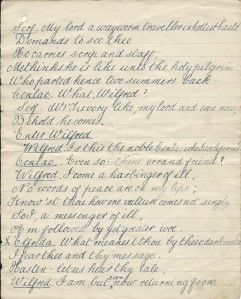 Serf. My lord a wayworn traveller in hot haste
Demands to see thee
He carries scrip and staff,
Methinks he is like unto the holy pilgrim
Who parted hence two summers back.
Cenlac. What, Wilfred?
Serf. 'Tis very like, my lord and even now,
Behold he comes.
Enter Wilfred
Wilfred. Is this the noble
Cenlac. Even so - thine errand friend?
Wilfred. I come a harbinger of ill,
No words of peace are on my lips;
Know'st thou how one vulture comes not singly
So I, a messenger of ill,
Am followed by
X Elgida. What meanest thou by these dark
I fear thee and thy message.
Hasten - let us hear thy tale,
Wilfred, I am but now returning from